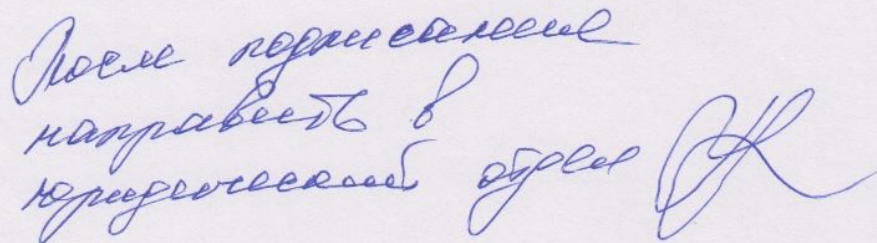 После подписания
направить в
юридический отдел